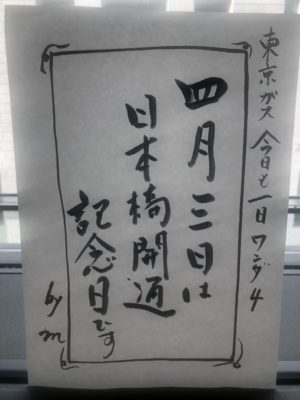 東京ガス 今日も一日ワンダ4
四月三日は
日本橋開通
記念日です
by m